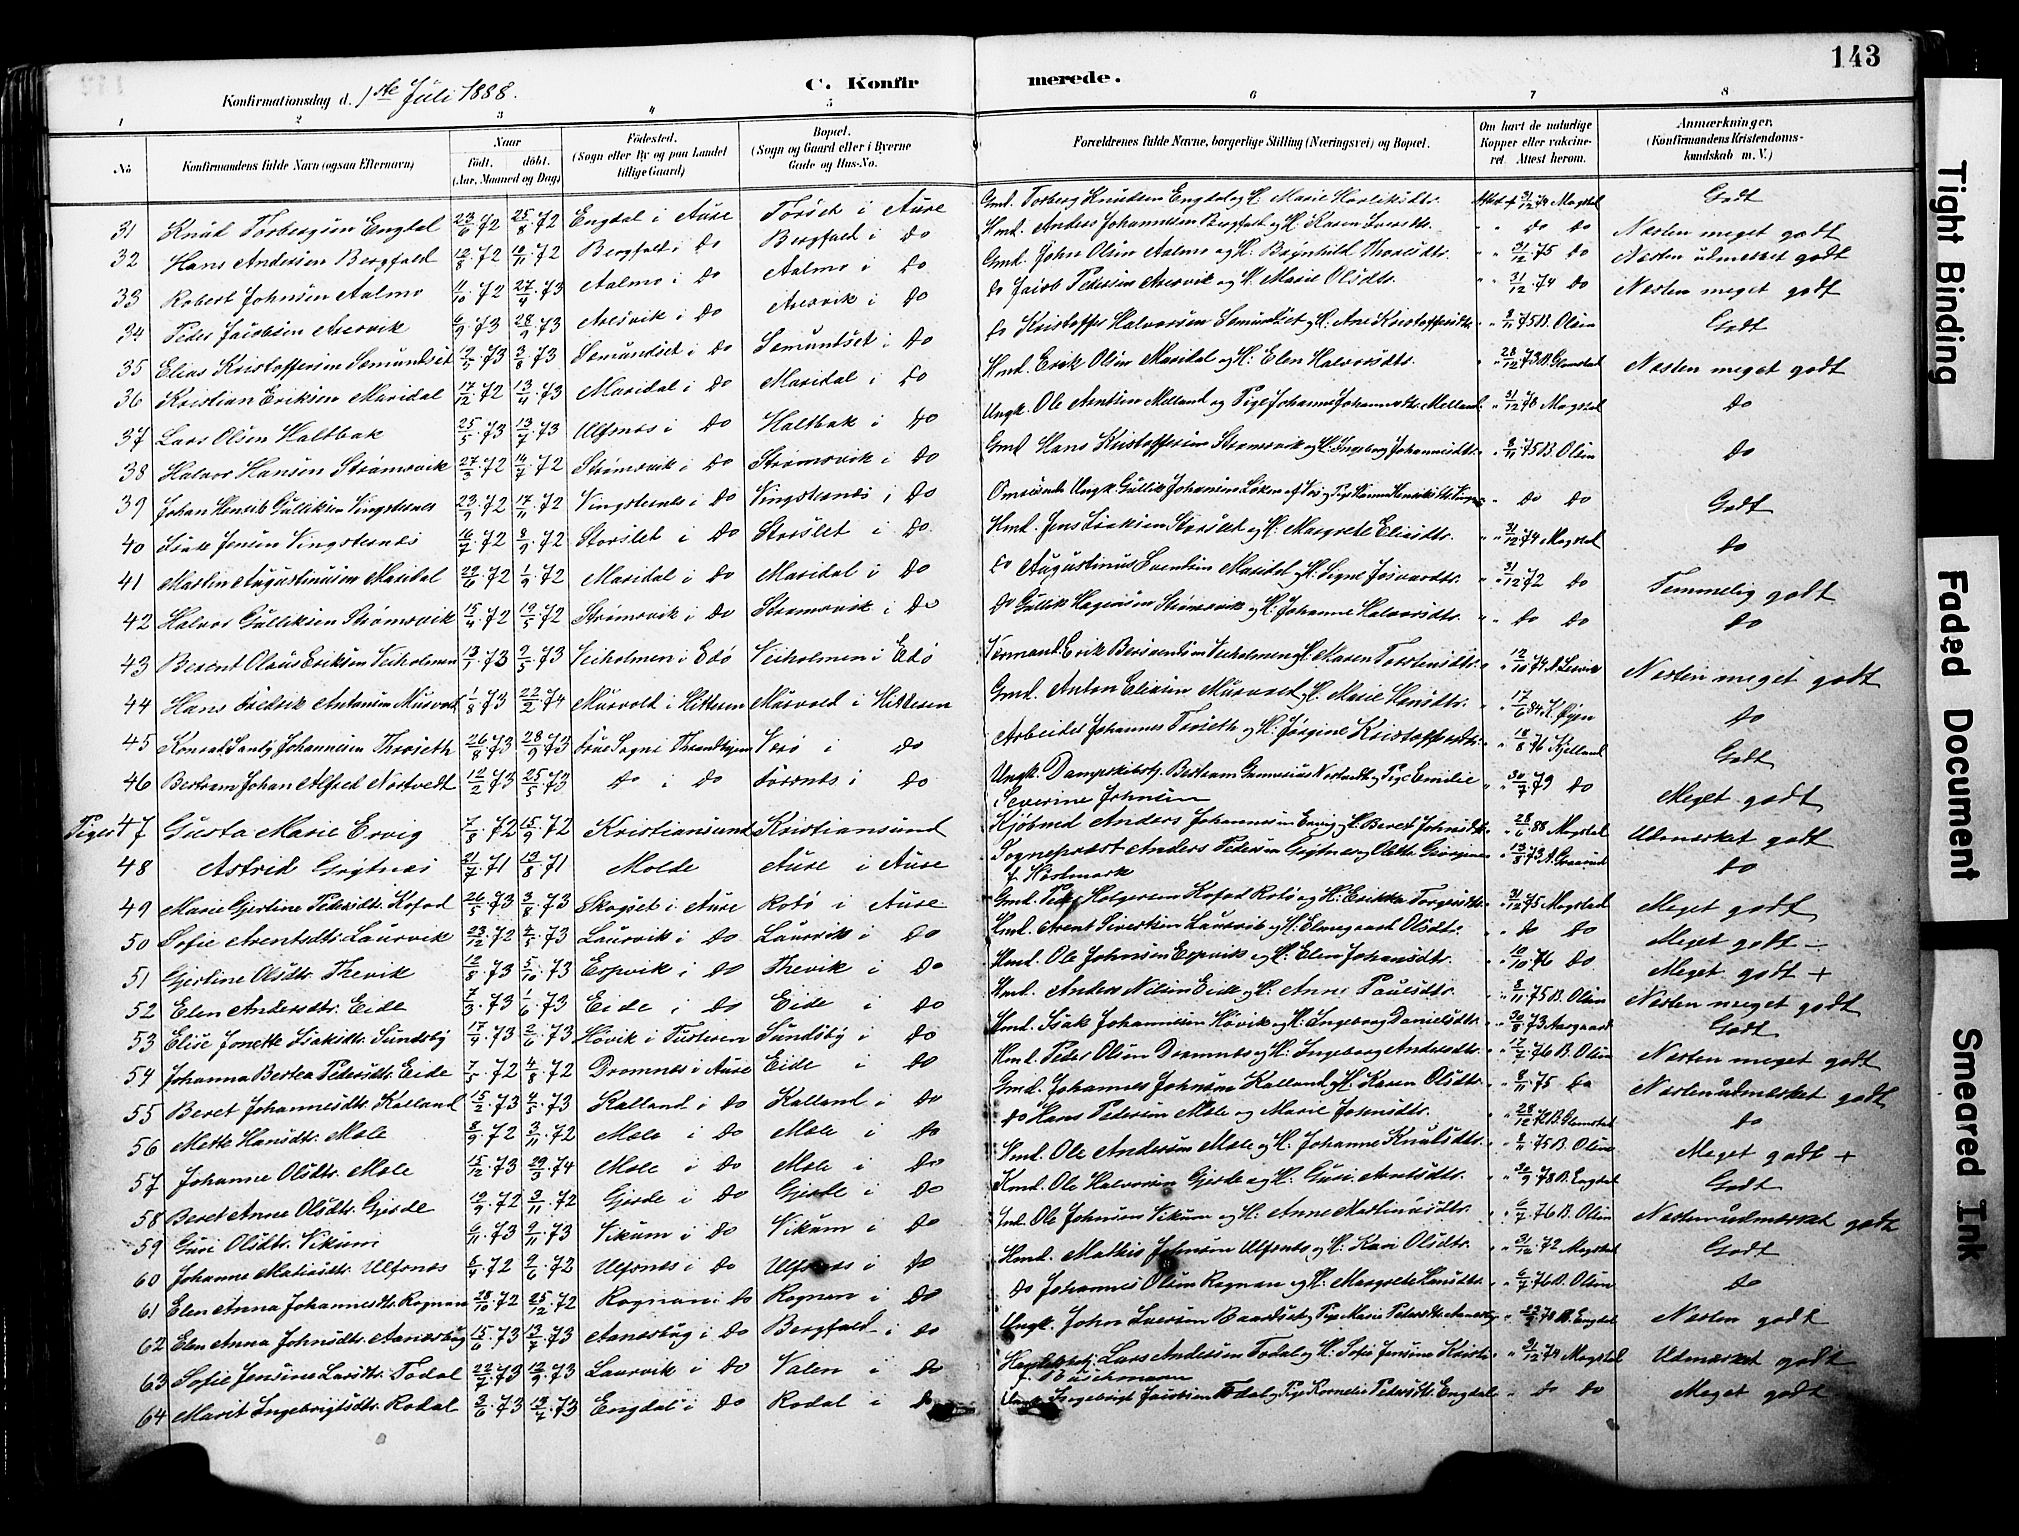 143
Konfirmationsdag d. 1ste Juli 1888.
C. Konfirmerede.
1 2 3 4 5 6 7 8
No
Konfirmandens fulde Navn (ogsaa Efternavn)
Naar
Født. døbt.
(Aar, Maaned og Dag)
Fødested.
(Sogn eller By og paa Landet
tillige Gaard)
Bopæl.
(Sogn og Gaard eller i Byerne
Gade og Hus-No.
Forældrenes fulde Navne, borgerlige Stilling (Næringsvei) og Bopæl.
Om havt de naturlige
Kopper eller vakcine-
ret. Attest herom.
Anmærkninger,
(Konfirmandens Kristendoms-
kundskab m. V.)
31 Knud Torbergsen Engdal 23/6 72 25/8 72 Engdal i Aure Torset i Aure Gmd. Torberg Knudsen Engdal og H. Marie 31/12 74 Magstad Godt
32 Hans Andersen Bergfald 12/8 72 10/11 72 Bergfald i Do Bergfald i Do Hmd. Anders Johannesen Bergfald og H. Karen do do Næsten meget godt
33 Robert Johnsen Aalmo 11/10 72 27/4 73 Aalmo i Do Aalmo i Do Gmd. John Olsen Aalmo og H. Brynhild 31/12 75 do Næsten udmerket godt
34 Peder Jacobsen Aresvik 6/9 73 28/9 73 Aresvik i Do Aresvik i Do do Jacob Pedersen Aresvik og H. Marie Olsdtr. 31/12 74 do Næsten meget godt
35 Elias Kristoffersen Semundset 73 3/8 73 Semundset i Do Semundset i Do do Kristoffer Halvorsen Semundset og H. Ane Kristoffersdtr. 8/11 75 B. Olsen Godt
36 Kristian Eriksen Maridal 17/12 72 13/4 73 Maridal i Do Maridal i Do Hmd. Erik Olsen Maridal og H. Elen Halvorsdtr. 28/12 73 Næsten meget godt
37 Lars Olsen Haltbak 25/5 73 13/7 73 Ulfsnes i Do Haltbak i Do Ungk. Ole Arntsen Melland og Pige Johanne Johannesdtr. Melland 31/12 78 Magstad do
38 Halvor Hansen Strømsvik 27/3 72 14/7 72 Strømsvik i Do Strømsvik i Do Gmd. Hans Kristoffersen Strømsvik og H. Ingeborg Johannesdtr. 8/11 75 B. Olsen do
39 Johan Henrik Gulliksen Vingsternes 23/9 72 17/11 72 Vingsternes i Do Vingsternes i Do Ungk. Gullik Johansen do do Godt
40 Isak Jensen Vingsternes 16/7 72 8/9 72 Storslet i Do Storslet i Do Hmd. Jens Isaksen Storslet og H. Margrete Eliasdtr. 31/12 74 Magstad do
41 Martin Augustinusen Maridal 29/6 72 1/9 72 Maridal i Do Maridal i Do do Augustinus Svendsen Maridal og H. Signe 31/12 72 do Temmelig godt
42 Halvor Gulliksen Strømsvik 15/4 72 19/5 72 Strømsvik i Do Strømsvik i Do do Gullik Hagensen Strømsvik og H. Johanne Halvorsdtr. do do do
43 Berent Olaus Eriksen Veiholmen 73 2/5 73 Veiholmen i Edø Veiholmen i Edø Erik Veiholmen og H. Maren Torstensdtr. 12/10 74 Næsten meget godt
44 Hans Fredrik Antonsen Musvold 1/8 73 22/2 74 Musvold i Hitteren Musvold i Hitteren Gmd. Anton Eliasen Musvold og H. Marie Hansdtr. 17/6 84 K. Øyen do
45 Konrad Johannesen Thorseth 26/8 73 28/9 73 Frue Sogn i Throndhjem i do Arbeider Johannes Torseth og H. Jørgine Kristoffersdtr. 18/8 76 Kjelland Godt
46 Bertram Johan Alfred Nortvedt 12/2 73 25/5 73 do i do i do Ungk. Dampskibs. Bertram Nortvedt og Pige Emilie 30/7 79 do Meget godt
Severine Johnsen
Piger 47 Gusta Marie Ervig 7/8 72 15/9 72 Kristiansund Kristiansund Kjøbmd Anders Johannesen Ervig og H. Beret Johnsdtr. 28/6 88 Magstad Udmerket godt
48 Astrid Grytnes 21/7 71 13/8 71 Molde Aure i Aure Sogneprest Anders Pedersen Grytnes og Olette Georgine 13/8 73 do
f. Kastmark
49 Marie Gjertine Pedersdtr. Kofod 26/5 73 3/8 73 Skogset i Aure Rotø i Aure Gmd. Peder Holgersen Kofod Rotø og H. Erikka Torgersdtr. 31/12 75 Magstad Meget godt
50 Sofie Arentsdtr. Laurvik 23/12 72 4/5 73 Laurvik i Do Laurvik i Do Hmd. Arent Sivertsen Laurvik og H. Elmegaard Olsdtr. do do Meget godt -
51 Gjertine Olsdtr. Thevik 12/8 73 5/10 73 Espvik i Do Thevik i Do Hmd. Ole Johnsen Espvik og H. Elen Johansdtr. 12/10 76 do Meget godt +
52 Elen Andersdtr. Eide 7/3 73 1/6 73 Eide i Do Eide i Do Hmd. Anders Nilsen Eide og H. Anne Paulsdtr. 8/11 75 B. Olsen Næsten meget godt
53 Elise Jonette Isaksdtr. Sundsby 17/4 73 2/6 73 Høvik i Tusteren Sundsby i Do Hmd. Isak Johannesen Høvik og H. Ingeborg Danielsdtr. 30/8 73 Aargaard Godt
54 Johanna Bertea Pedersdtr. Eide 7/5 72 4/8 72 Dromnes i Aure Eide i Do Hmd. Peder Olsen Dromnes og H. Ingeborg Andersdtr. 17/7 76 B. Olsen Næsten meget godt
55 Beret Johannesdtr. Kalland 15/2 73 4/5 73 Kalland i Do Kalland i Do Gmd. Johannes Johnsen Kalland og H. Karen Olsdtr. 8/11 75 do Næsten udmerket godt
56 Mette Hansdtr. Mole 8/9 72 3/11 72 Mole i Do Mole i Do do Hans Pedersen Mole og Marie Johnsdtr. 28/12 do
57 Johanne Olsdtr. Mole 15/12 73 29/3 74 Mole i Do Mole i Do Hmd. Ole Andersen Mole og H. Johanne Knudsdtr. 8/11 75 B. Olsen Meget godt +
58 Beret Anne Olsdtr. Gjerde 72 3/11 72 Gjerde i Do Gjerde i Do Kmd. Ole Halvorsen Gjerde og H. Guri Arntsdtr. 30/9 78 B. Engdal Godt
59 Guri Olsdtr. Vikum 6/11 73 9/11 73 Vikum i Do Vikum i Do Ind. Ole Johnsen Vikum og H. Anne Martinusdtr. 6/7 76 B. Olsen Næsten udmerket godt
60 Johanne Matiasdtr. Ulfsnes 8/4 72 9/6 72 Ulfsnes i Do Ulfsnes i Do Hmd. Mathis Johnsen Ulfsnes og H. Kari Olsdtr. 31/12 72 Magstad Godt
61 Elen Anna Johannesdtr. Rognan 28/10 72 25/12 72 Rognan i Do Rognan i Do do Johannes Olsen Rognan og H. Margrete Hansdtr. 6/7 76 B. Olsen do
62 Elen Anna Johnsdtr. Aanesbug 15/6 73 13/7 73 Aanesbug i Do Bergfald i Do Ungk. John Iversen Baardset og Pige Marie Pedersdtr. Aanesbug 78 B. Engdal Næsten godt
63 Sofie Jensine Larsdtr. Todal 22/7 73 12/9 73 Laurvik i Do Valen i Do Lars Andersen Todal og H. Sofie Jensine 31/12 74 Magstad Udmerket godt
f. Buschmann
64 Marit Ingebrigtsdtr. Rodal 2/6 73 13/7 73 Engdal i Do Rodal i Do Ungk. Ingebrigt Jacobsen Todal og Pige Kornelie Pedersdtr. Engdal do do Meget godt
Tight Binding
Faded Document
Smeared Ink